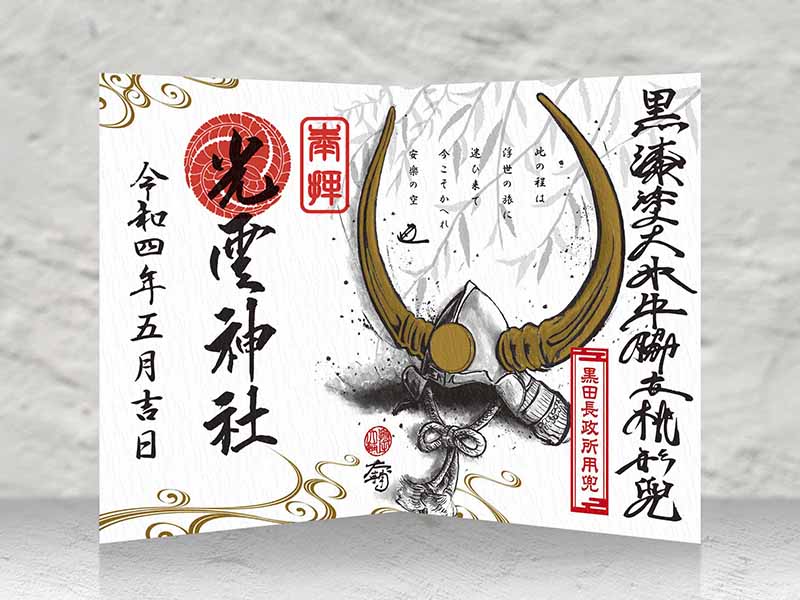 黒漆塗大水牛脇立桃形兜
黒田長政所用兜
此の程は
浮世の旅に
迷ひ来て
今こそかへれ
安楽の空
奉拝
光雲神社
令和四年五月吉日